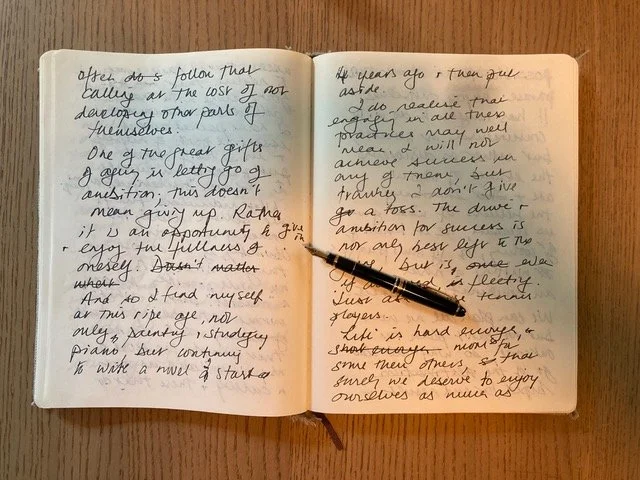 often do s follow that
calling at the cost of not
developing other parts of
themselves.
One of the great gifts
of aging is letting go of
ambition; this doesn't
mean giving up. Rather
it is an opportunity to give in
+ enjoy the fullness of
oneself. Doesn't matter
And so I find myself
at this ripe age, not
only painting, studying
piano, but continuing
to write a novel I start
4 years ago + then put
aside.
I do realise that
engaging in all these
practices may well
mean I will not
achieve success in
any of them, but
frankly I don't give
a toss. The drive +
ambition for success is
not only best left to the
but is, once even
if is fleeting.
Just tennis
players.
Life is hard enough, +
short enough more for
some than others, so that
surely we deserve to enjoy
ourselves as much as